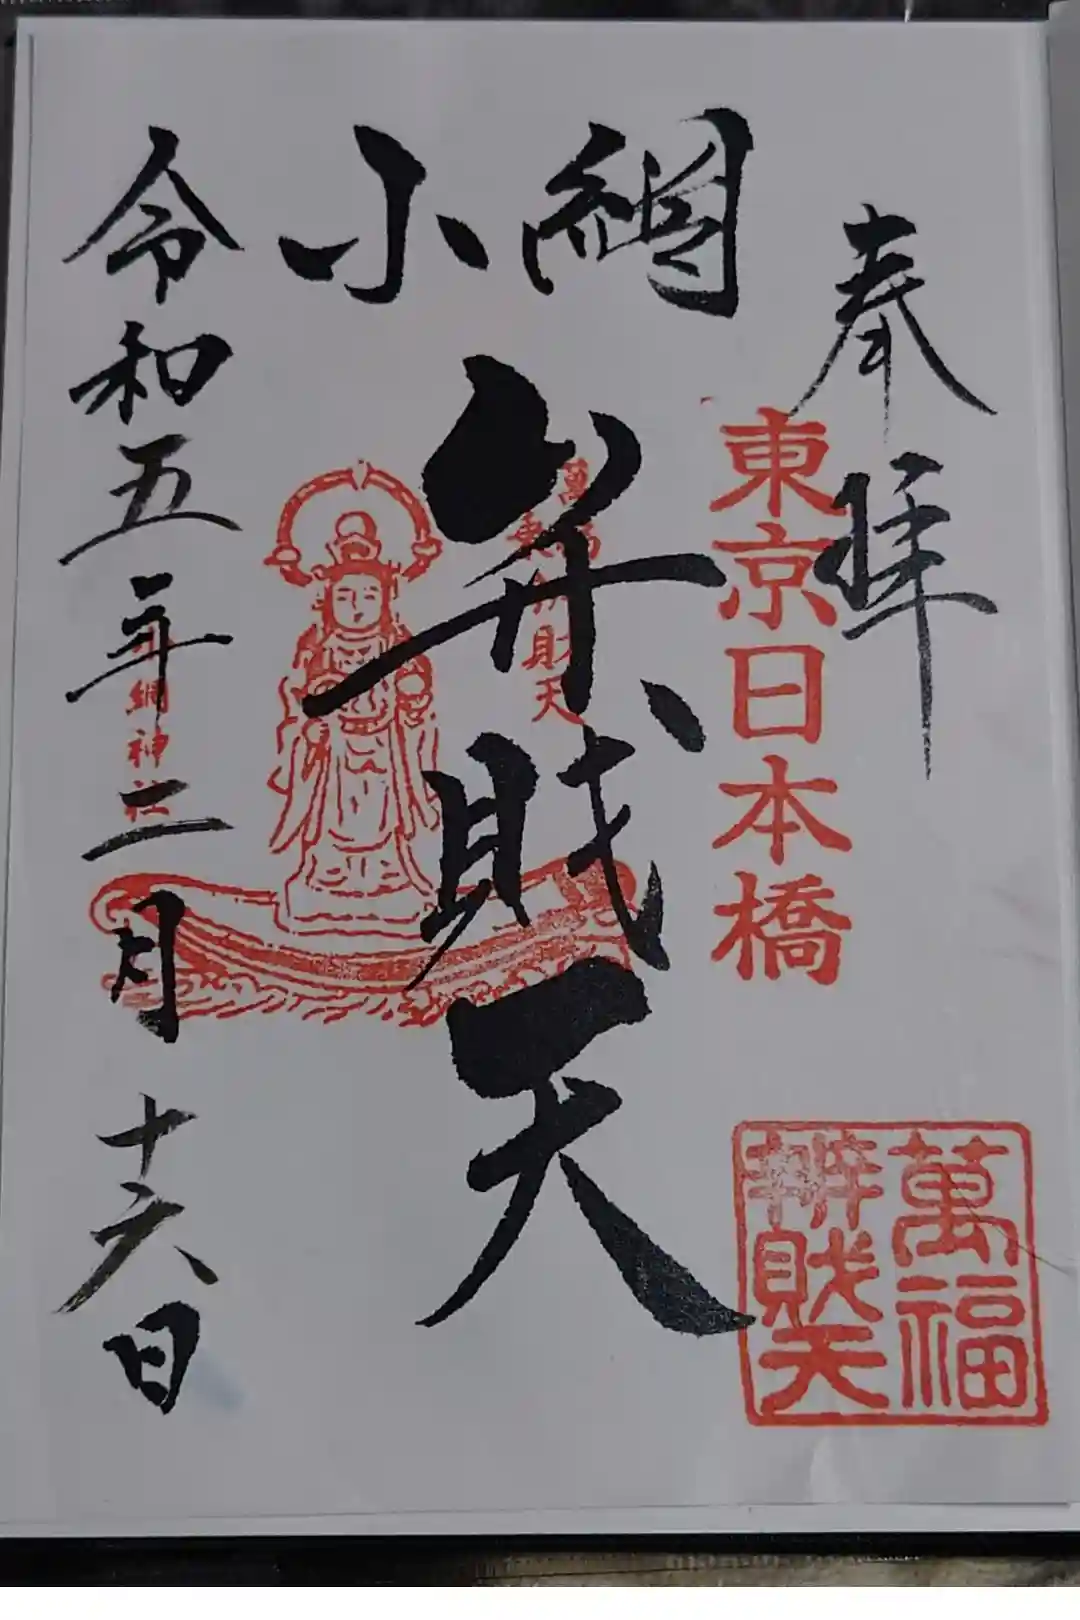 奉拝
東京日本橋
萬福
辨財天
小網
弁財天
萬福
財天
網神社
令和五年二月十六日